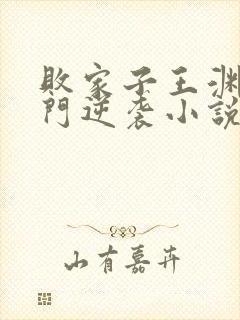 敗家子王淵
門逆袭小説
山有嘉卉